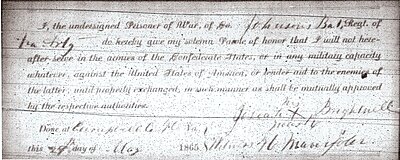 I, the undersigned Prisoner of War, of Co. Johnsons Bat, Regt. of
Va Arty do hereby give my solemn Parole of honor that I will not here-
after serve in the armies of the Confederate States, or in any military capacity
whatever, against the United States of America, or render aid to the enemies of
the latter, until properly exchanged, in such manner as shall be mutually approved
by the respective authorities.
Brightwell
Done at Campbell C. H. Va,
this 27th day of May 1865.